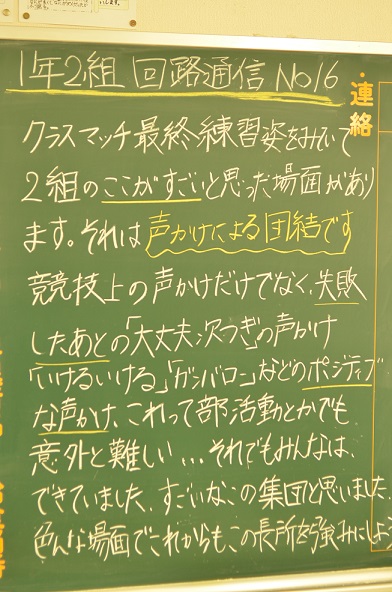 1年2組 回路通信 No16
連絡
クラスマッチ最終練習姿をみていて
2組のここがすごいと思った場面があり
ます。それは声かけによる団結です
競技上の声かけだけでなく、失敗
したあとの「大丈夫、次つぎ」の声かけ
「いけるいける」「ガンバロー」などのポジティブ
な声かけ、これって部活動とかでも
意外と難しい...それでもみんなは、
できていました、すごいなこの集団と思いました
色んな場面でこれからもこの長所を強みにしよう